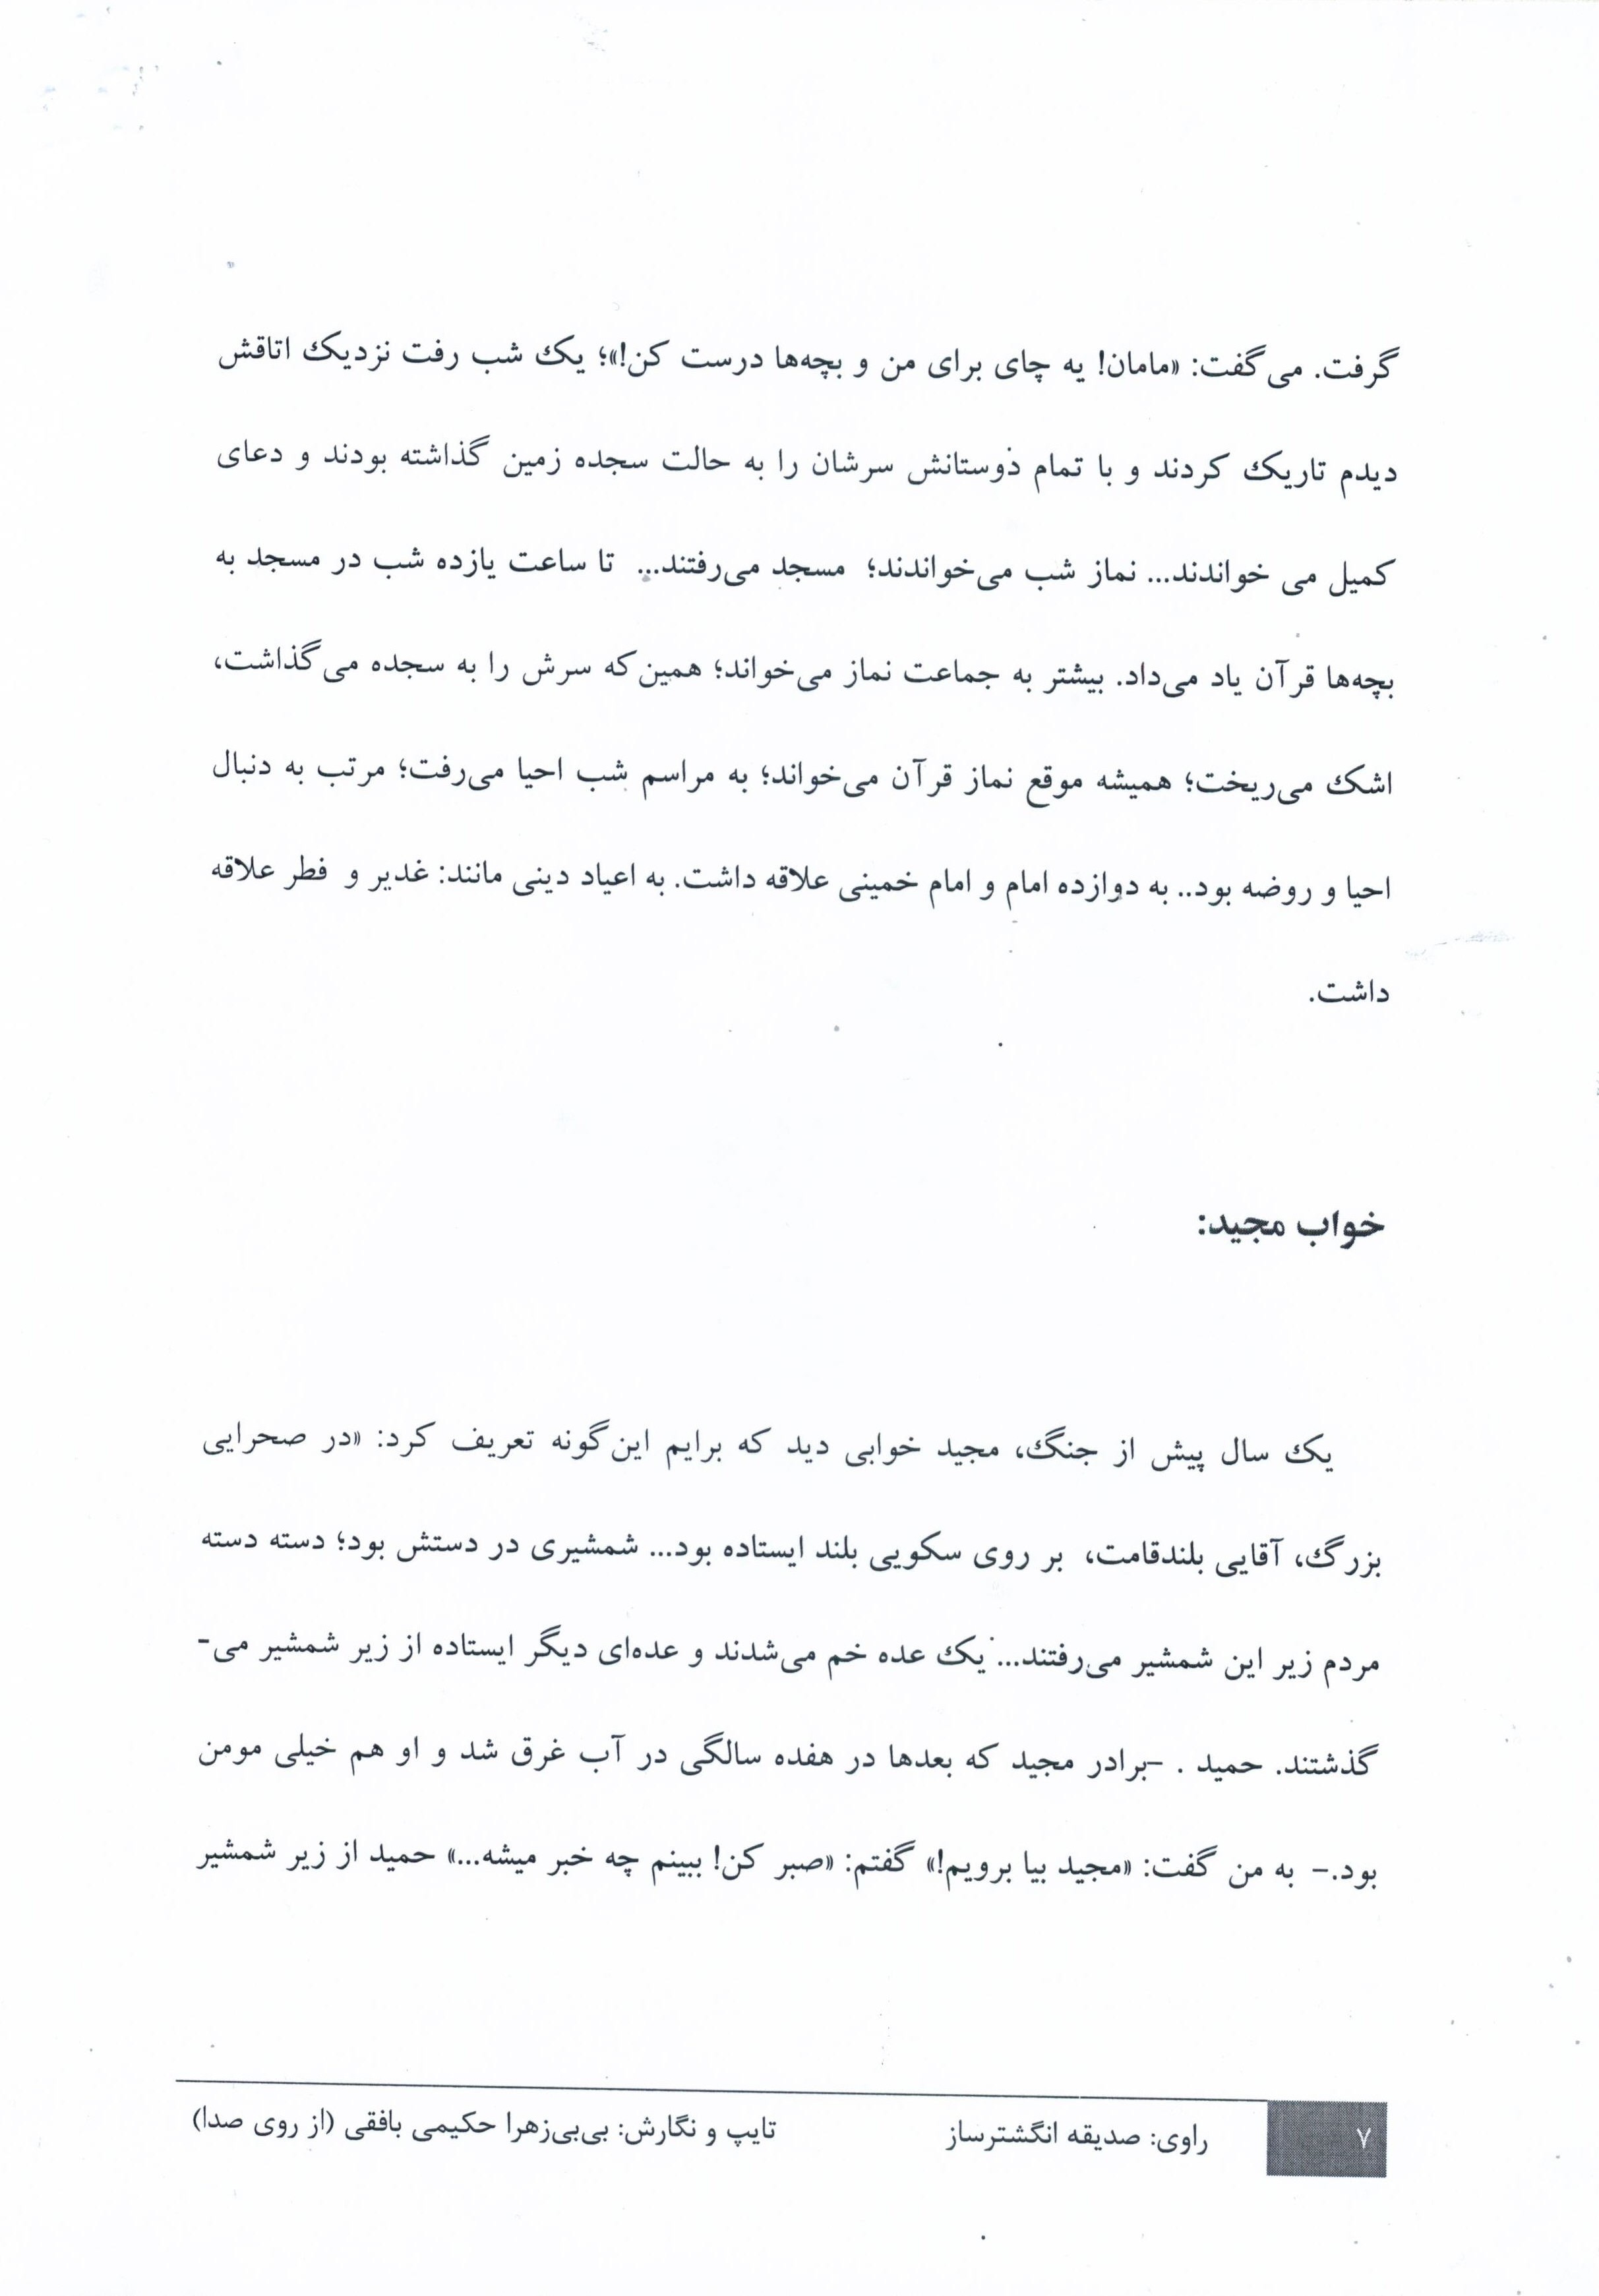 گرفت. می‌گفت: «مامان! یه چای برای من و بچه‌ها درست کن!»؛ یک شب رفت نزدیک اتاقش
دیدم تاریک کردند و با تمام دوستانش سرشان را به حالت سجده زمین گذاشته بودند و دعای
کمیل می خواندند... نماز شب می‌خواندند؛ مسجد می‌رفتند... تا ساعت یازده شب در مسجد به
بچه‌ها قرآن یاد می‌داد. بیشتر به جماعت نماز می‌خواند؛ همین‌که سرش را به سجده می‌گذاشت،
اشک می‌ریخت؛ همیشه موقع نماز قرآن می‌خواند؛ به مراسم شب احیا می‌رفت؛ مرتب به دنبال
احیا و روضه بود.. به دوازده امام و امام خمینی علاقه داشت. به اعیاد دینی مانند: غدیر و فطر علاقه
داشت.
خواب مجید:
یک سال پیش از جنگ، مجید خوابی دید که برایم این‌گونه تعریف کرد: «در صحرایی
بزرگ، آقایی بلندقامت، بر روی سکویی بلند ایستاده بود... شمشیری در دستش بود؛ دسته دسته
مردم زیر این شمشیر می‌رفتند... یک عده خم می‌شدند و عده‌ای دیگر ایستاده از زیر شمشیر می-
گذشتند. حمید . -برادر مجید که بعدها در هفده سالگی در آب غرق شد و او هم خیلی مومن
بود.- به من گفت: «مجید بیا برویم!» گفتم: «صبر کن! ببینم چه خبر میشه...» حمید از زیر شمشیر
۷ راوی: صدیقه انگشترساز تایپ و نگارش: بی‌بی‌زهرا حکیمی بافقی (از روی صدا)